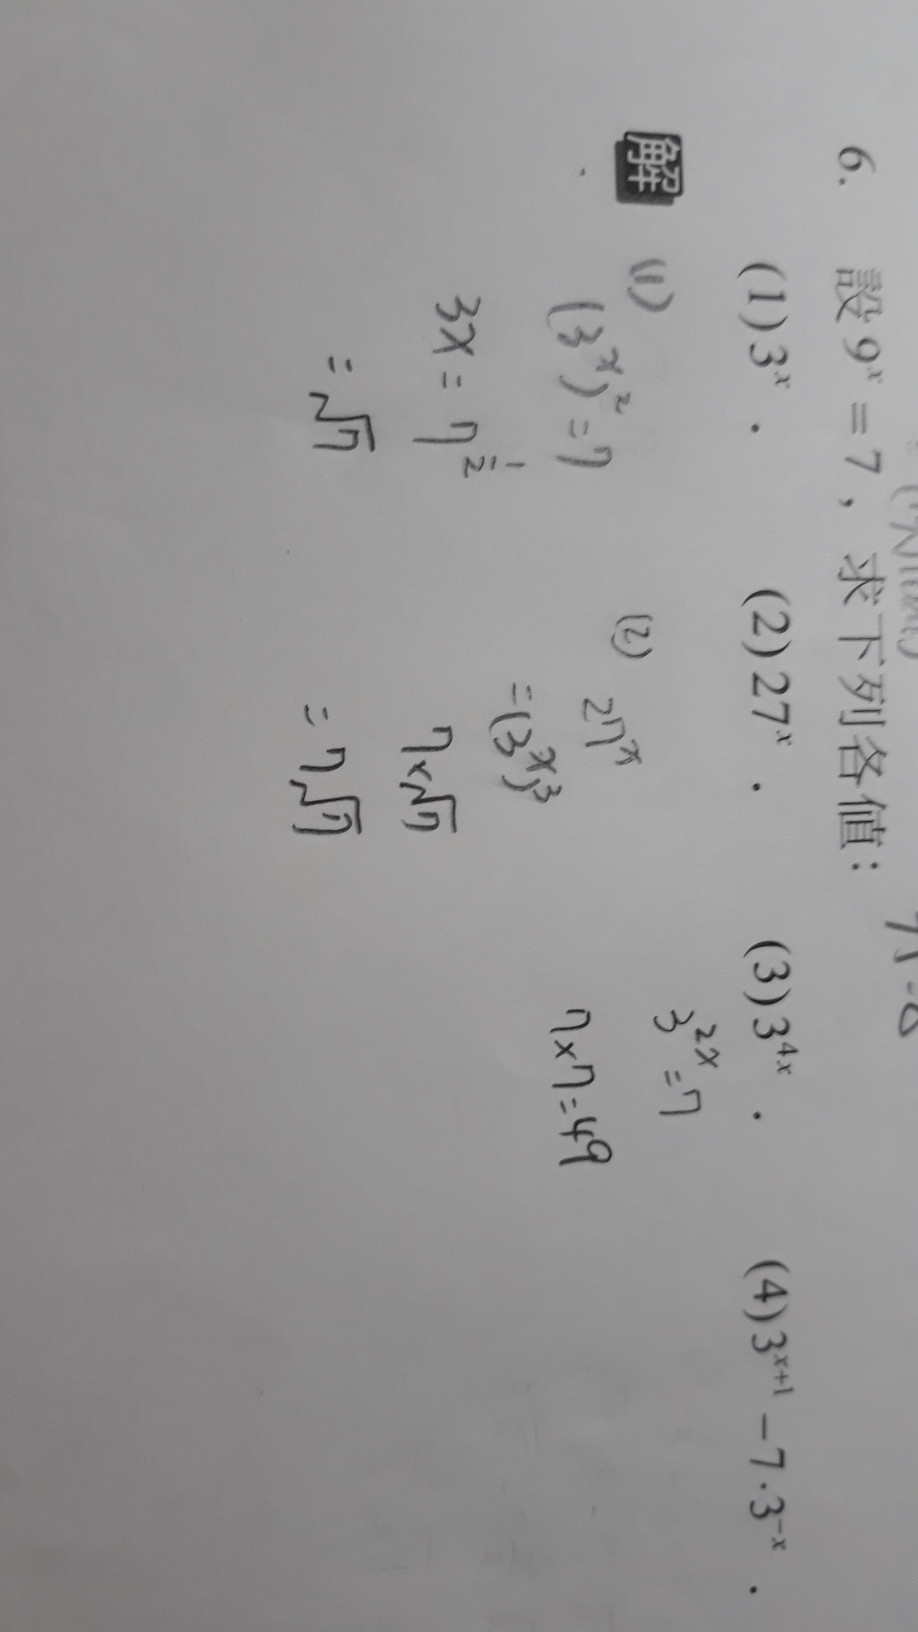 6. 設 9^x = 7，求下列各值：
(1) 3^x . (2) 27^x . (3) 3^{4x} . (4) 3^{x+1} − 7 · 3^{−x} .
解
(1)
(3^x)^2 = 7
3x = 7^{1/2}
= √7
(2) 27^x
= (3^x)^3
7×√7
= 7√7
3^{2x} = 7
7×7=49